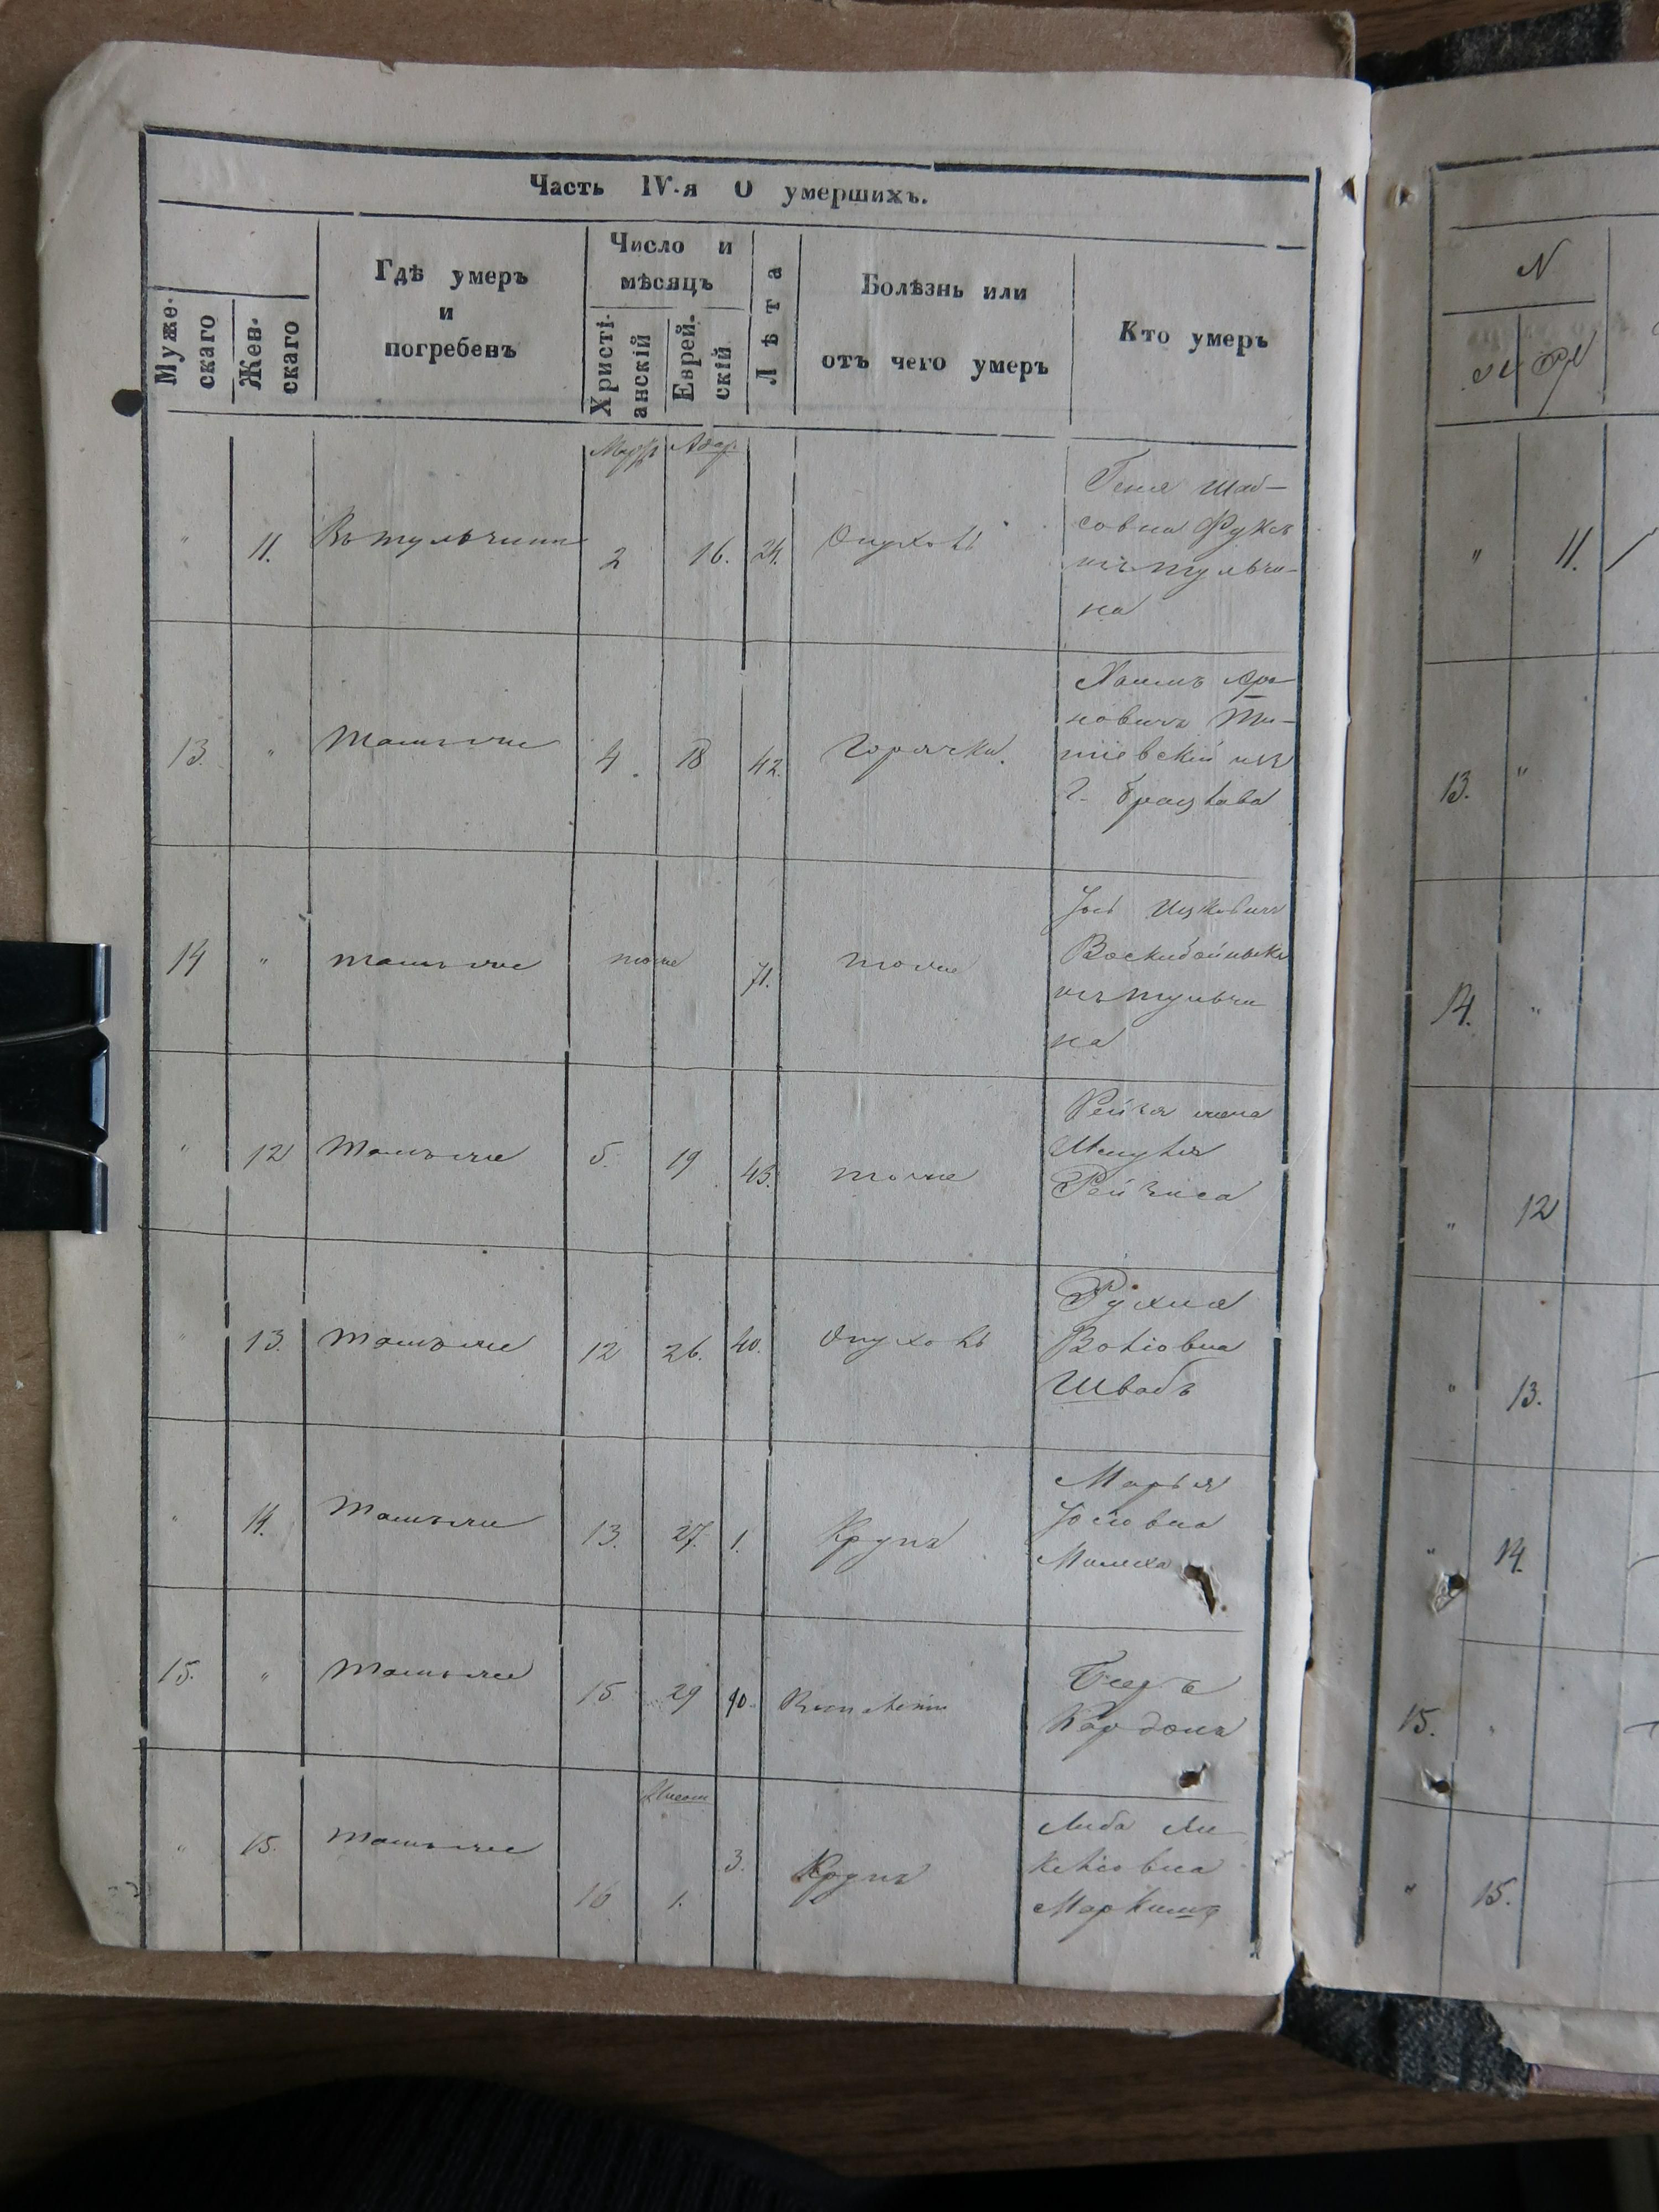 Часть IV-я О умершихъ.
Муже-
скаго
Жен-
скаго
Гдѣ умеръ
и
погребенъ
Число и
мѣсяцъ
Христі-
анскій
Еврей-
скій
Лѣта
Болѣзнь или
отъ чего умеръ
Кто умеръ
Мартъ Адар
" 11. Въ тульчинѣ 2 16. 24. Опухоль
Геня Шаб-
совна Фуксъ
изъ тульчи-
на
13. " тамъ же 4. 18 42. Горячки.
Хаимъ
новичъ
изъ
г. брацлава
14 " тамъ же тоже 71. тоже
Іось Ицковичъ
изъ тульчи
на
" 12 тамъ же 5. 19. 43. тоже
Рейзя жена
Рейзиса
" 13. тамъ же 12 26. 40. Опухоль
Рухля
Волфовна
Швабъ
" 14. тамъ же 13. 27. 1. Крупъ
Марьям
Іосіовна
15. " тамъ же 15 29 90.
Кордонъ
Нисан
" 15. тамъ же 16 1. 3. Крупъ
Либа
N
11.
13. "
14. "
" 12
" 13.
" 14.
15. "
" 15.